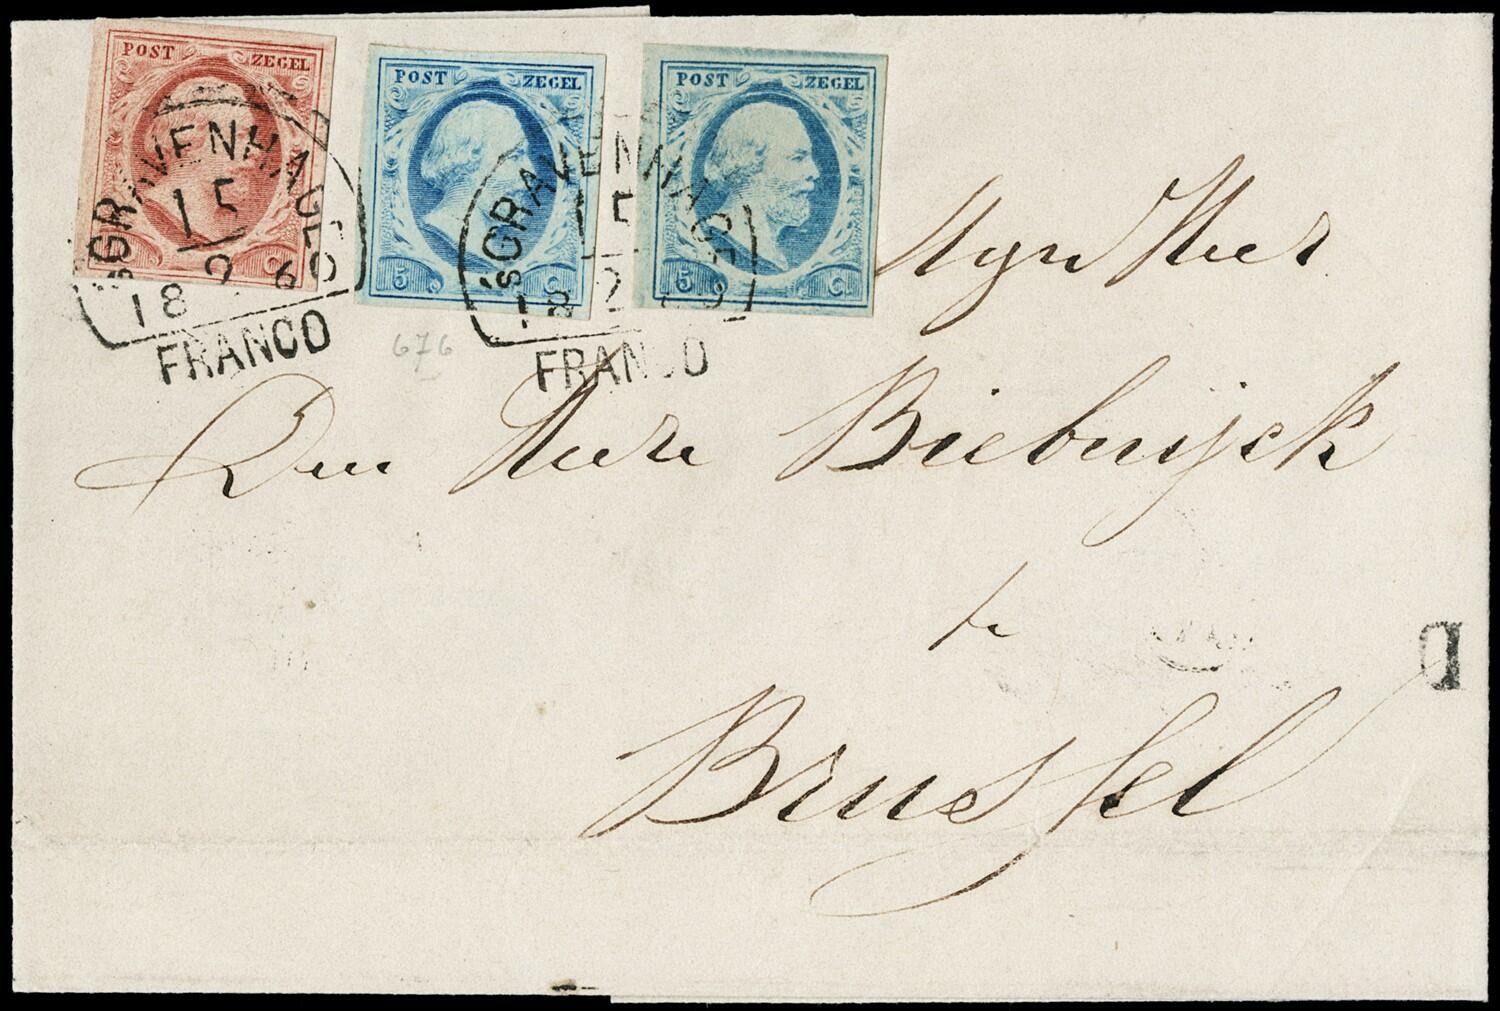 POST ZEGEL
POST ZEGEL
5 C
POST ZEGEL
5 C
'sGRAVENHAGE
15
2
18 60
FRANCO
'sGRAVENHAGE
15
2
18
FRANCO
676
Mynheer
Den Heere Biebuijck
te
Brussel
D